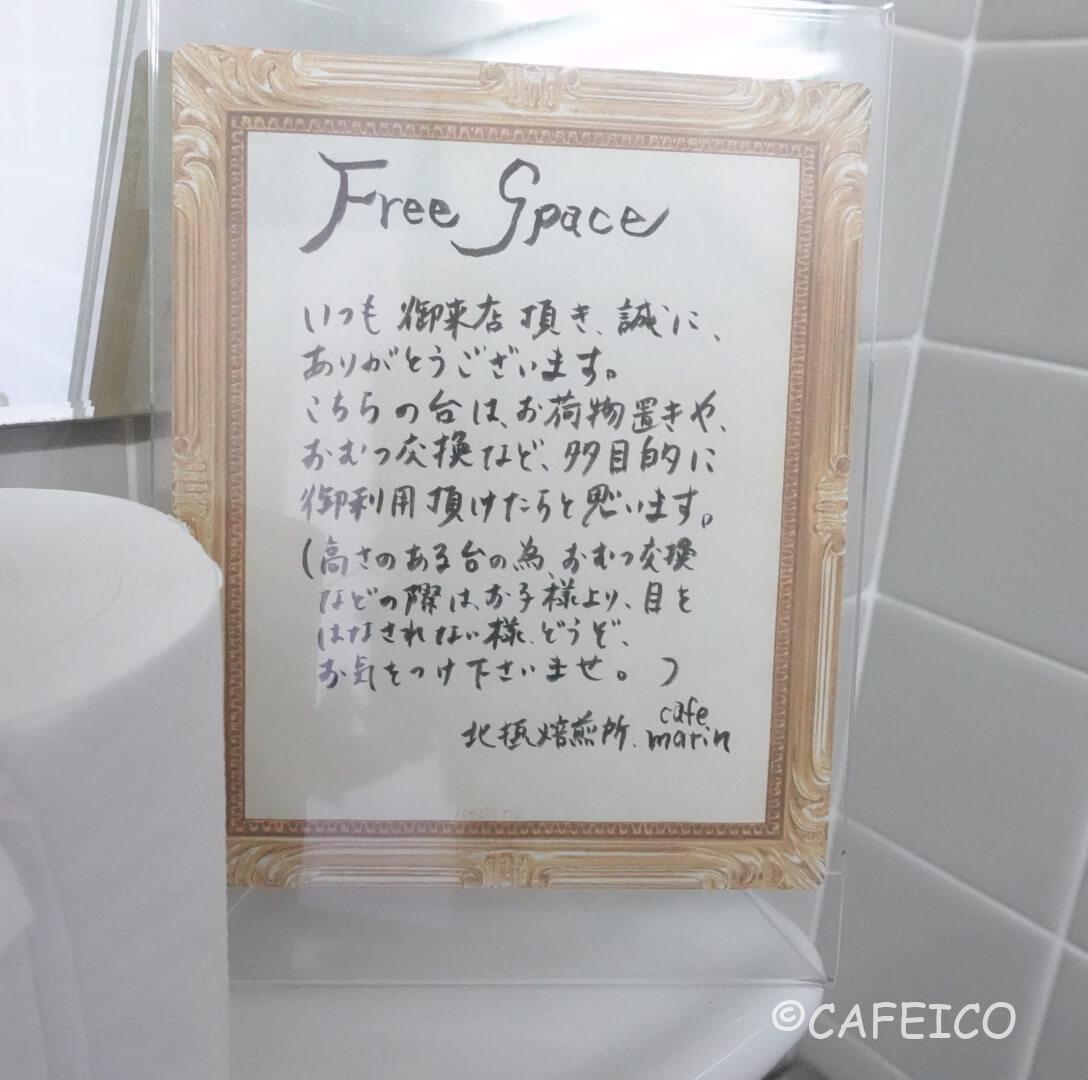 Free Space
いつも御来店頂き、誠に、
ありがとうございます。
こちらの台は、お荷物置きや、
おむつ交換など、多目的に
御利用頂けたらと思います。
(高さのある台の為、おむつ交換
などの際は、お子様より、目を
はなされない様、どうぞ、
お気をつけ下さいませ。)
北 焙煎所、cafe marin
©CAFEICO